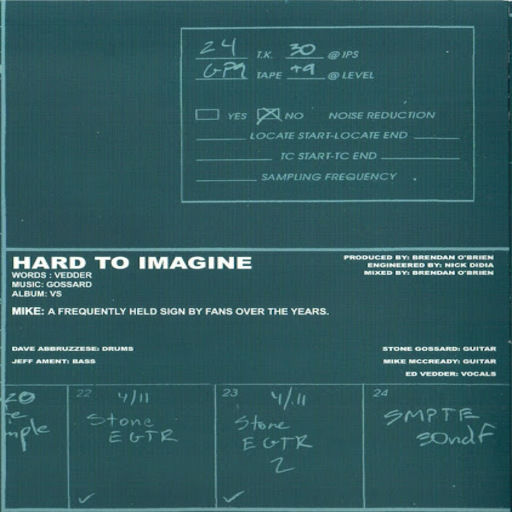 24 T.K. 30 @ IPS
GP9 TAPE +9 @ LEVEL
YES NO NOISE REDUCTION
LOCATE START-LOCATE END
TC START-TC END
SAMPLING FREQUENCY
HARD TO IMAGINE
WORDS : VEDDER
MUSIC: GOSSARD
ALBUM: VS
PRODUCED BY: BRENDAN O'BRIEN
ENGINEERED BY: NICK DIDIA
MIXED BY: BRENDAN O'BRIEN
MIKE: A FREQUENTLY HELD SIGN BY FANS OVER THE YEARS.
DAVE ABBRUZZESE: DRUMS
JEFF AMENT: BASS
STONE GOSSARD: GUITAR
MIKE MCCREADY: GUITAR
ED VEDDER: VOCALS
22 4/11
Stone
EGTR
23 4/11
Stone
EGTR
2
24
SMPTE
30ndF